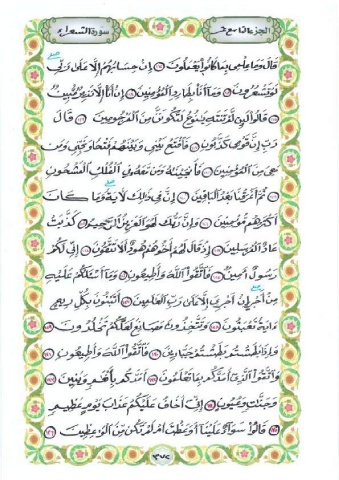 الجزء التاسع عشر
سورة الشعراء
قَالَ وَمَا عِلْمِي بِمَا كَانُوا۟ يَعْمَلُونَ ١١٢ إِنْ حِسَابُهُمْ إِلَّا عَلَىٰ رَبِّي
لَوْ تَشْعُرُونَ ١١٣ وَمَآ أَنَا۠ بِطَارِدِ ٱلْمُؤْمِنِينَ ١١٤ إِنْ أَنَا۠ إِلَّا نَذِيرٌ مُّبِينٌ ١١٥
قَالُوا۟ لَئِن لَّمْ تَنتَهِ يَٰنُوحُ لَتَكُونَنَّ مِنَ ٱلْمَرْجُومِينَ ١١٦ قَالَ
رَبِّ إِنَّ قَوْمِي كَذَّبُونِ ١١٧ فَٱفْتَحْ بَيْنِي وَبَيْنَهُمْ فَتْحًا وَنَجِّنِي وَمَن
مَّعِيَ مِنَ ٱلْمُؤْمِنِينَ ١١٨ فَأَنجَيْنَٰهُ وَمَن مَّعَهُۥ فِي ٱلْفُلْكِ ٱلْمَشْحُونِ
١١٩ ثُمَّ أَغْرَقْنَا بَعْدُ ٱلْبَاقِينَ ١٢٠ إِنَّ فِي ذَٰلِكَ لَءَايَةً وَمَا كَانَ
أَكْثَرُهُم مُّؤْمِنِينَ ١٢١ وَإِنَّ رَبَّكَ لَهُوَ ٱلْعَزِيزُ ٱلرَّحِيمُ ١٢٢ كَذَّبَتْ
عَادٌ ٱلْمُرْسَلِينَ ١٢٣ إِذْ قَالَ لَهُمْ أَخُوهُمْ هُودٌ أَلَا تَتَّقُونَ ١٢٤ إِنِّي لَكُمْ
رَسُولٌ أَمِينٌ ١٢٥ فَٱتَّقُوا۟ ٱللَّهَ وَأَطِيعُونِ ١٢٦ وَمَآ أَسْـَٔلُكُمْ عَلَيْهِ
مِنْ أَجْرٍ إِنْ أَجْرِيَ إِلَّا عَلَىٰ رَبِّ ٱلْعَٰلَمِينَ ١٢٧ أَتَبْنُونَ بِكُلِّ رِيعٍ
ءَايَةً تَعْبَثُونَ ١٢٨ وَتَتَّخِذُونَ مَصَانِعَ لَعَلَّكُمْ تَخْلُدُونَ ١٢٩
وَإِذَا بَطَشْتُم بَطَشْتُمْ جَبَّارِينَ ١٣٠ فَٱتَّقُوا۟ ٱللَّهَ وَأَطِيعُونِ ١٣١
وَٱتَّقُوا۟ ٱلَّذِيٓ أَمَدَّكُم بِمَا تَعْلَمُونَ ١٣٢ أَمَدَّكُم بِأَنْعَٰمٍ وَبَنِينَ ١٣٣
وَجَنَّٰتٍ وَعُيُونٍ ١٣٤ إِنِّيٓ أَخَافُ عَلَيْكُمْ عَذَابَ يَوْمٍ عَظِيمٍ
١٣٥ قَالُوا۟ سَوَآءٌ عَلَيْنَآ أَوَعَظْتَ أَمْ لَمْ تَكُن مِّنَ ٱلْوَٰعِظِينَ ١٣٦
٣٧٢